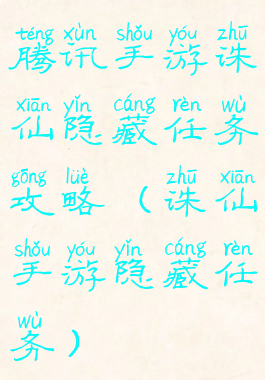 téng xùn shǒu yóu zhū
腾讯手游诛
xiān yǐn cáng rèn wù
仙隐藏任务
gōng lüè zhū xiān
攻略（诛仙
shǒu yóu yǐn cáng rèn
手游隐藏任
wù
务）